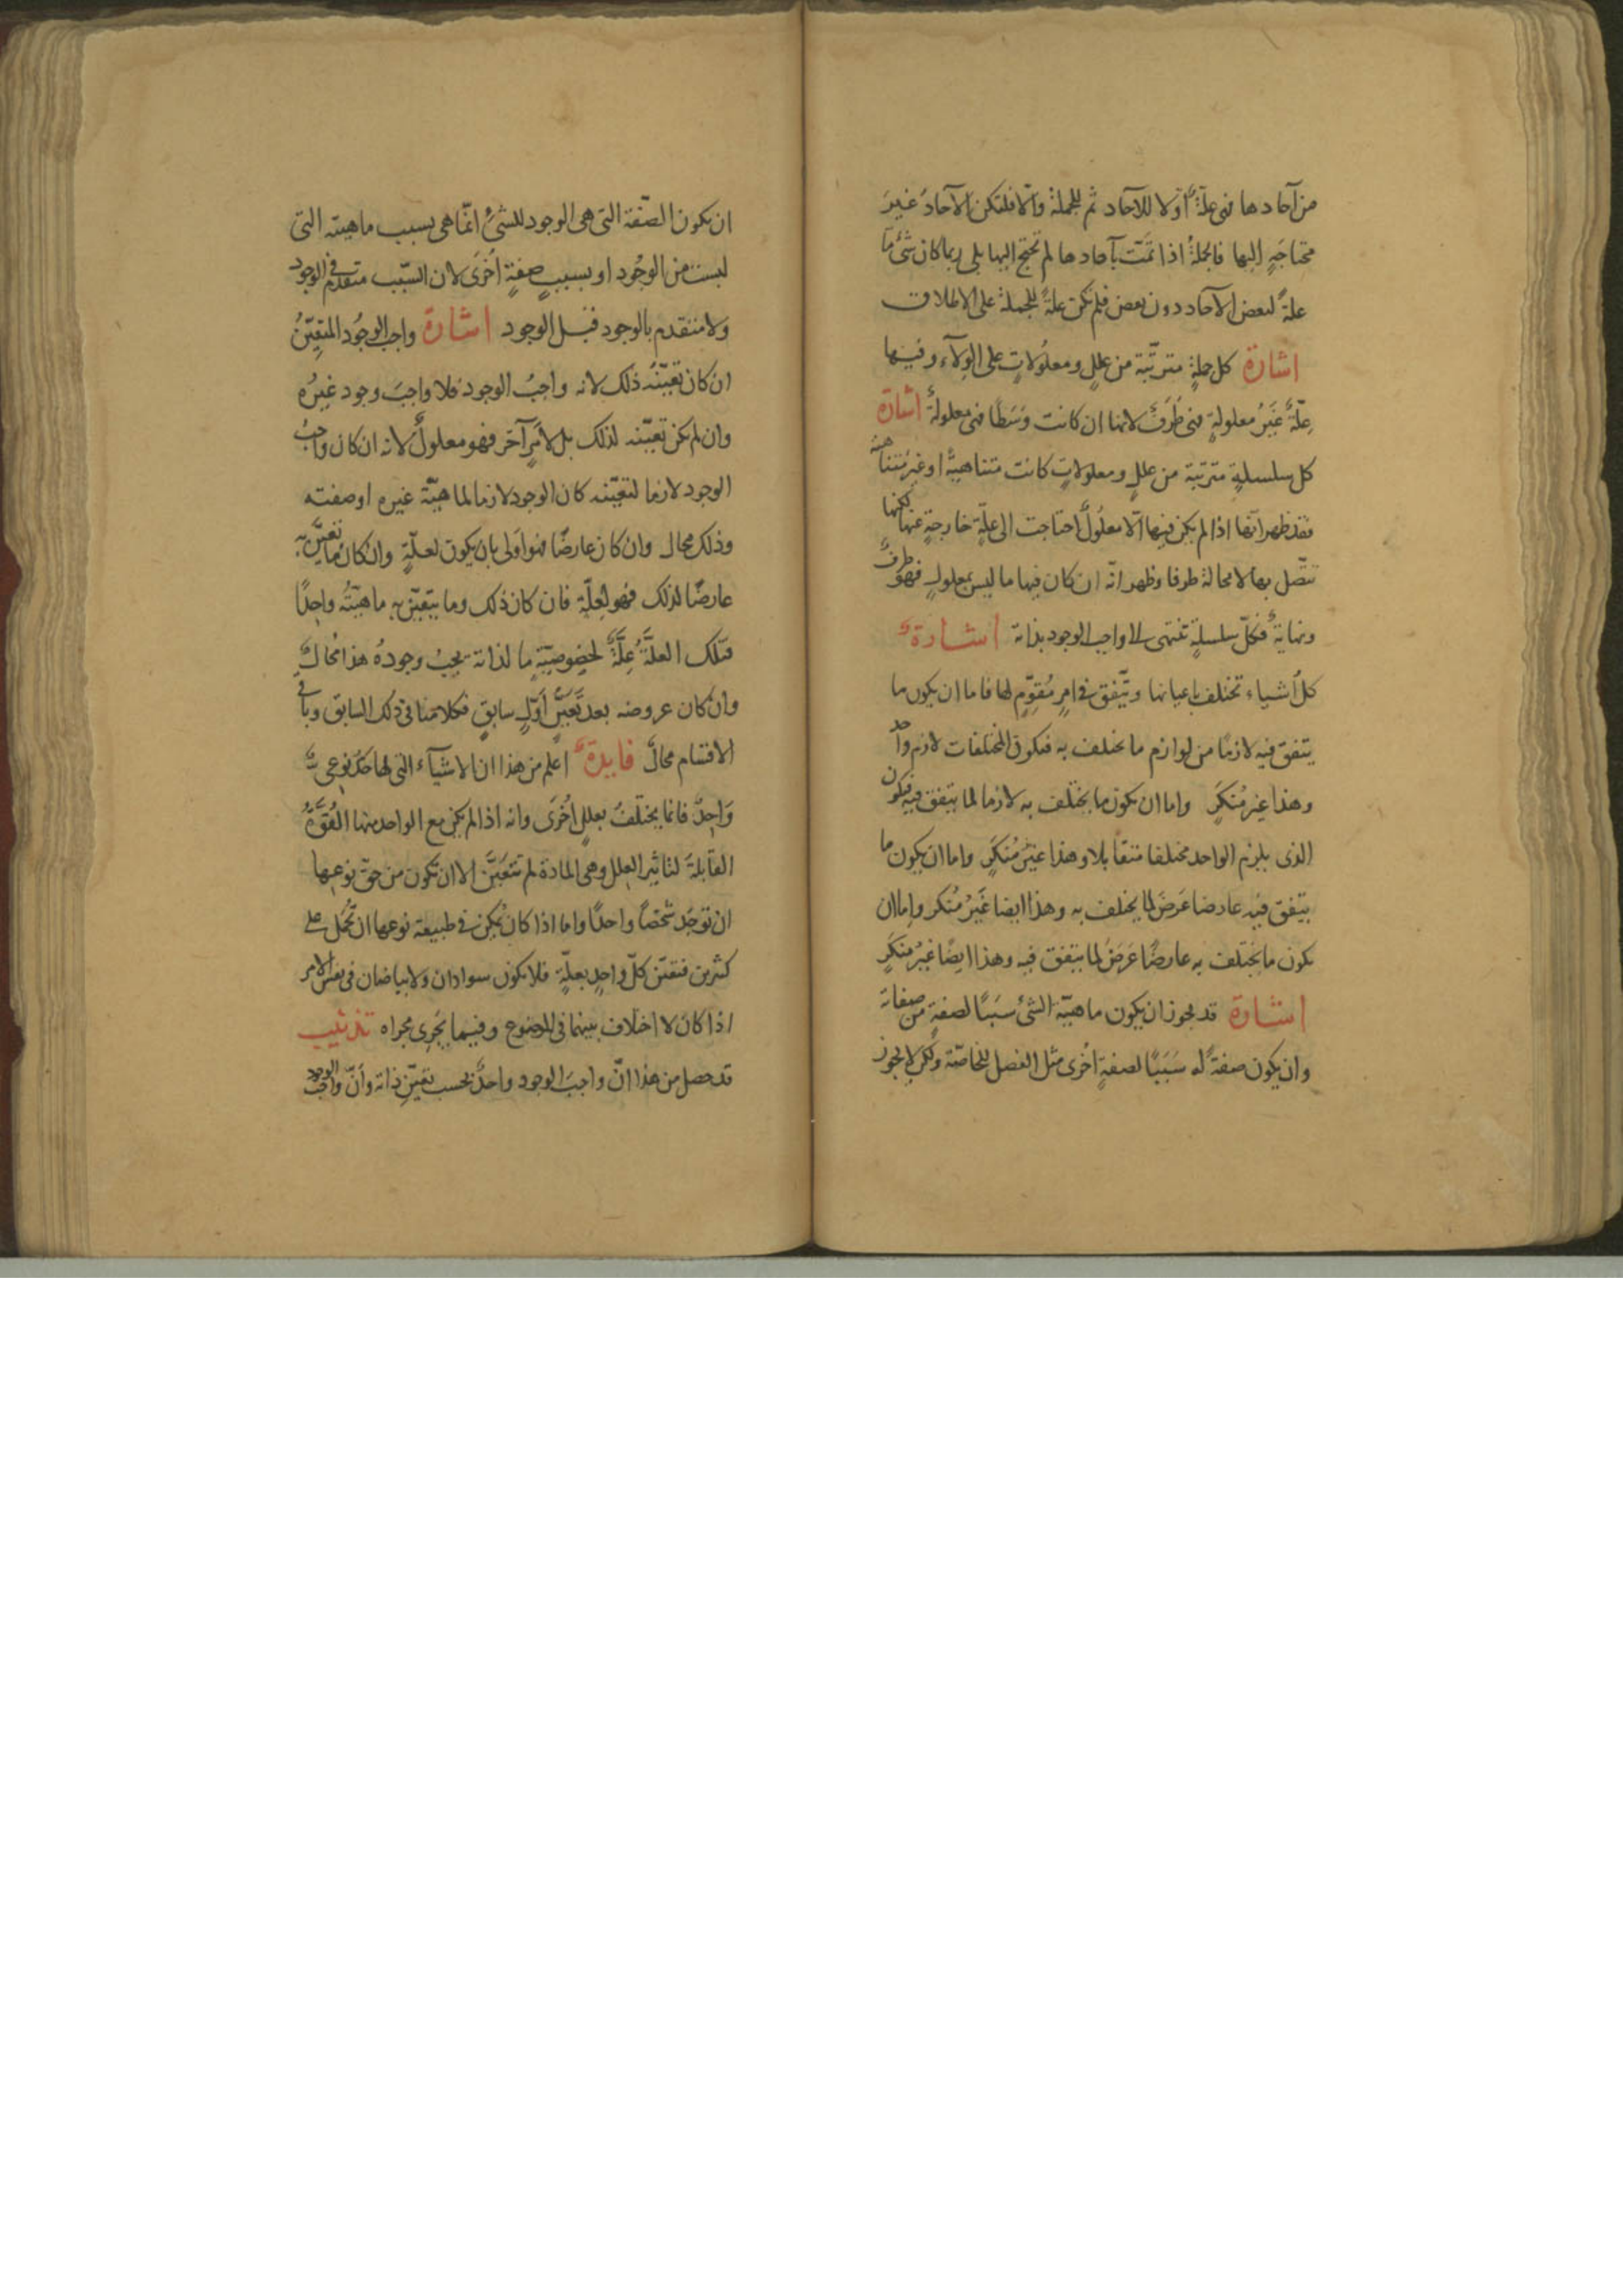 من آحادها فهى علةٌ أولا للآحاد ثم للجملة والا فلتكن الآحادُ غيرَ
محتاجةٍ اليها فالجملةُ اذا تمّت بآحادها لم تحتج اليها بلى ربما كان شئ ما
علةً لبعض الآحاد دون بعض فلم تكن علةً للجملة على الاطلاق
اشارة كل جملةٍ مترتّبة من عللٍ ومعلولاتٍ على الولآء وفيها
عِلّةٌ غيرُ معلولةٍ فهى طَرَفٌ لانها ان كانت وَسَطًا فهى معلولةٌ اشارة
كل سلسلةٍ مترتبة من عللٍ ومعلولاتٍ كانت متناهيةً او غير متناهية
فقد ظهر انها اذا لم يكن فيها الّا معلولٌ احتاجت الى علّةٍ خارجةٍ عنها لكنها
تتّصل بها لا محالة طرفا وظهر انّه ان كان فيها ما ليس بمعلولٍ فهو طرفٌ
ونهايةٌ فكلّ سلسلةٍ تنتهى الى واجب الوجود بذاته اشارةٌ
كلُّ اشياء تختلف باعيانها وتتّفق فى امرٍ مُقوّمٍ لها فاما ان يكون ما
يتفق فيه لازمًا من لوازم ما تختلف به فيكون للمختلفات لازم واحد
وهذا غير مُنكَرٍ واما ان يكون ما يختلف به لازما لما يتفق فيه فيكون
الذى يلزم الواحد مختلفا متقابلا وهذا غيرُ مُنكَرٍ واما ان يكون ما
يتفق فيه عارضا عَرَضَ لما يختلف به وهذا ايضا غَيرُ مُنكر واما ان
يكون ما يختلف به عارضًا عَرَضَ لما يتفق فيه وهذا ايضًا غيرُ منكَرٍ
اشارة قد يجوز ان يكون ماهيّة الشئ سَبَبًا لصفةٍ من صفاته
وان يكون صفةٌ له سَبَبًا لصفةٍ اُخرى مثل الفصل للخاصّة ولكن لا يجوز
ان يكون الصّفة التى هى الوجود للشئ انّما هى بسبب ماهيته التى
ليست من الوجُود او بسببِ صفةٍ اُخرَى لان السّبب متقدم فى الوجود
ولا متقدم بالوجود قبل الوجود اشارة واجب الوجُود المتعيّنُ
ان كان تعيّنُه ذلك لانه واجبُ الوجود فلا واجبَ وجود غيرُه
وان لم يكن تعيّنه لذلك بل لأمرٍ آخر فهو معلولٌ لانه ان كان واجبُ
الوجود لازما لتعيّنه كان الوجود لازما لماهيّة غيره او صفته
وذلك محال وان كان عارضًا فهو اَولى بان يكون لعلّةٍ وان كان ما تعيَّن به
عارضًا لذلك فهو لعِلّةٍ فان كان ذلك وما يتعيّن به ماهيّتُه واحِدًا
فتلك العلّةُ عِلّةٌ لخصوصيّةِ ما لذاته يجبُ وجودُه هذا مُحالٌ
وان كان عروضه بعد تَعيّنٍ أوّلٍ سابقٍ فكلامنا فى ذلك السابق وباقى
الاقسام محالٌ فايدةٌ اعلم من هذا ان الاشيآء التى لها حَدّ نوعىّ
وَاحِدٌ فانما يختلفُ بعللٍ اُخرَى وانه اذا لم يكن مع الواحد منها القُوَّةُ
القابلةَ لتاثير العلل وهى المادة لم تتعَيَّن الا ان تكون من حقّ نوعِها
ان توجَد شخصًا واحدًا واما اذا كان يُمكن فى طبيعة نوعها ان تُحمل على
كثيرين فتعيّن كلّ واحِدٍ بعلّةٍ فلا يكون سوادان ولا بياضان فى نفس الامر
اذا كان لا اختلاف بينهما فى الموضوع وفيما يجرى مجراه تذنيب
قد حصل من هذا انّ واجبَ الوجود واحدٌ بحسب تعيّنِ ذاته وأنّ واجب الوجود